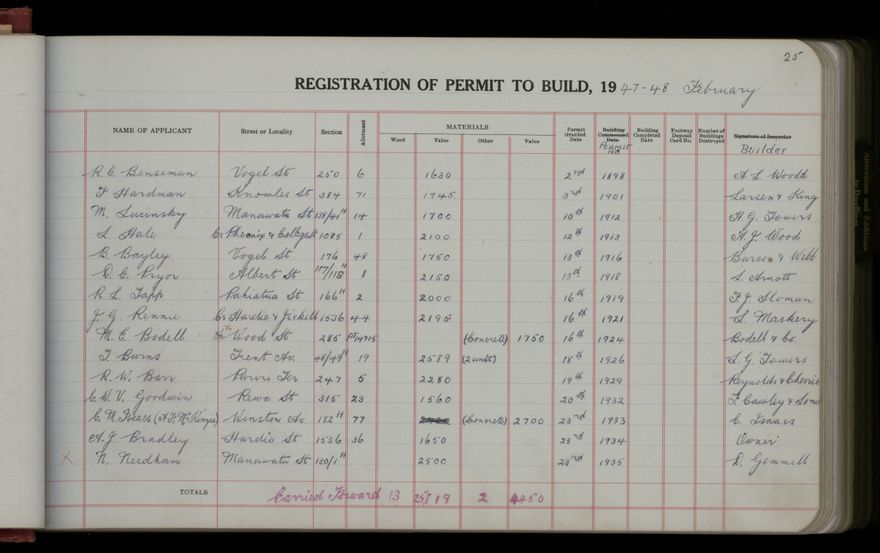 25
REGISTRATION OF PERMIT TO BUILD, 1947-48 February
NAME OF APPLICANT Street or Locality Section Allotment MATERIALS Wood Value Other Value Permit Granted Date Building Commenced Date PERMIT NO Building Completed Date Footway Deposit Card No. Number of Buildings Destroyed Signature of Inspector Builder
R. C. Benseman Vogel St 250 6 1630 2nd 1898 A L Woodd
F Hardman Knowles St 384 71 1745 3rd 1901 Larsen & King
M. Lucinsky Manawatu St 139/41H 14 1700 10th 1912 H G. Towers
L Hale Cr Phoenix & College St 1085 1 2100 12th 1913 A. J. Wood
B. Bayley Vogel St 176 48 1750 13th 1916 & Webb
D. C. Pryor Albert St 117/118H 8 2150 13th 1918 S. Arnott
R. L. Tapp Pahiatua St 166H 2 2000 16th 1919 F J. Sloman
J. G. Rennie Cr Hardie & Jickell 1536 44 2195 16th 1921 L. Maskery
M. E. Bodell Wood St 285 PT 14 & 15 (Concrete) 1750 16th 1924 Bodell & Co.
T. Burns Trent Av. 48/49H 19 2589 (2 units) 18th 1926 S. G. Towers
R. W. Barr Puriri Ter 247 5 2280 19th 1929 Reynolds &
C. W. V. Goodwin Rewa St 315 23 1560 20th 1932 F Cawley & Sons
C. M. Isaacs Winston Av. 182H 77 (Concrete) 2700 23rd 1933 C. Isaacs
A. J. Bradley Hardie St 1536 36 1650 23rd 1934 Owner
X N. Needham Manawatu St 130/1H 2500 23rd 1935 D. Gemmell
TOTALS Carried Forward 13 25819 2 4450
Alterations and Additions to Dwellings